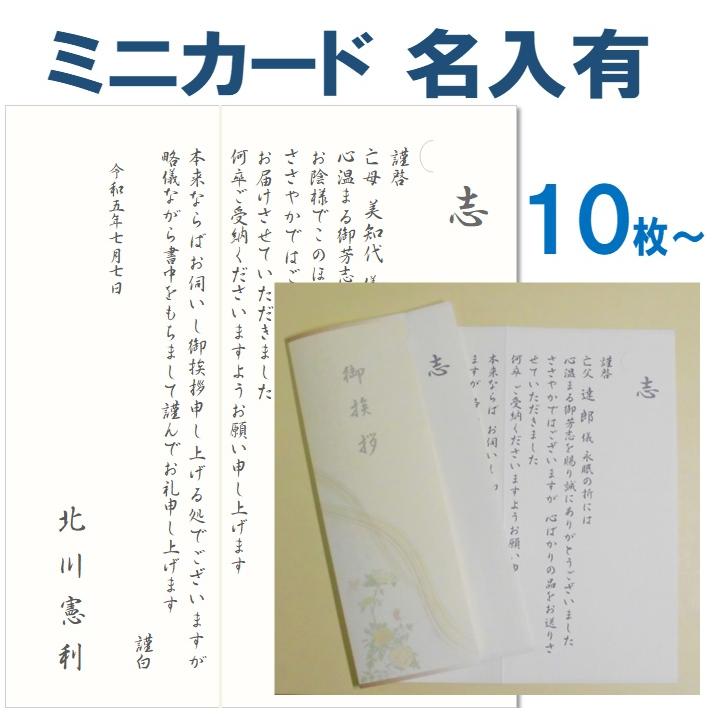 ミニカード 名入有
10枚～
志
謹啓
亡母 美知代
心温まる御芳志
お陰様でこのほ
ささやかではご
お届けさせていただきました
何卒ご受納くださいますようお願い申し上げます
本来ならばお伺いし御挨拶申し上げる処でございますが
略儀ながら書中をもちまして謹んでお礼申し上げます
謹白
令和五年七月七日
北川憲利
志
謹啓
亡父 達郎 儀 永眠の折には
心温まる御芳志を賜り誠にありがとうございました
ささやかではございますが 心ばかりの品をお送りさ
せていただきました
何卒 ご受納くださいますようお願い
本来ならば お伺いし
ますが
志
御挨拶